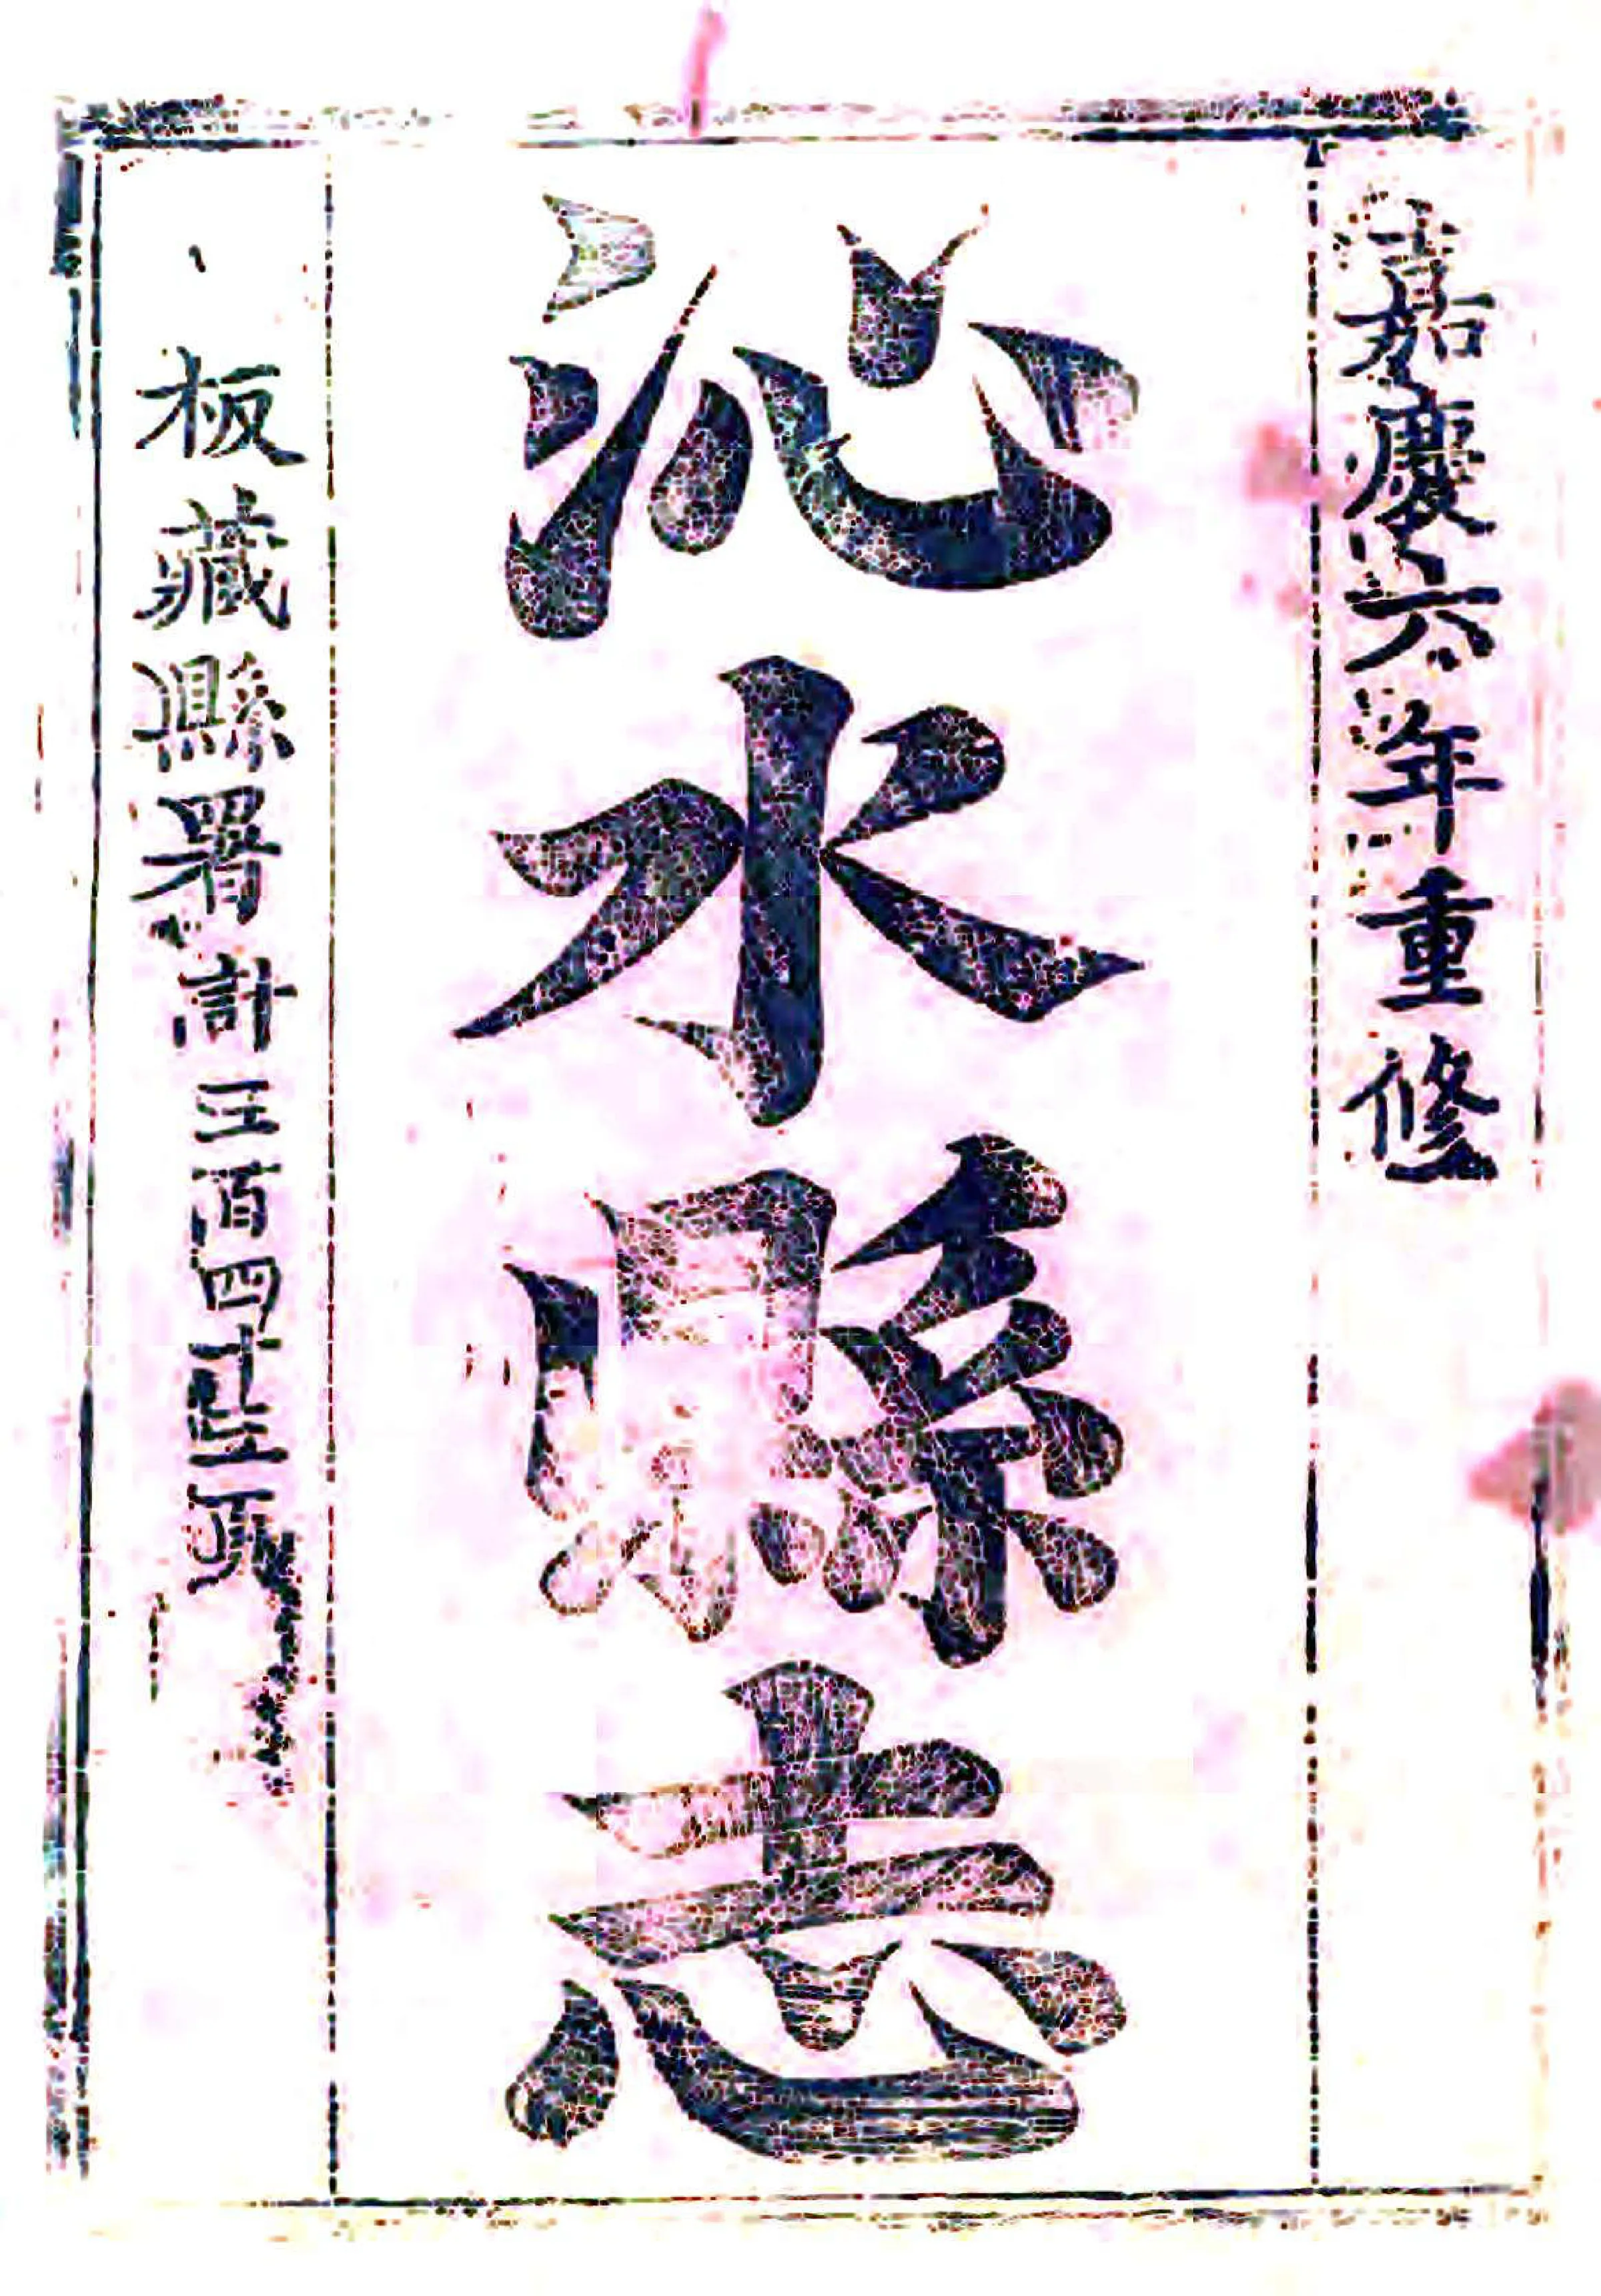 嘉慶六年重修
沁水縣志
板藏縣署計三百四十五頁